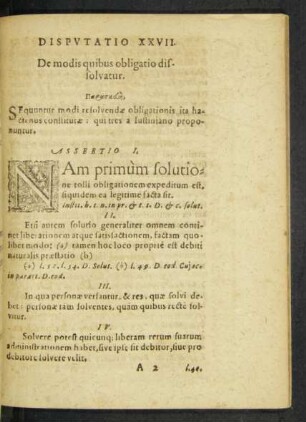 DISPVTATIO XXVII.
De modis quibus obligatio dis-
solvatur.
SEquuntur modi resolvendæ obligationis ita ha-
ctenus constitutæ: qui tres à Iustiniano propo-
nuntur.
ASSERTIO I.
NAm primùm solutio-
ne tolli obligationem expeditum est,
siquidem ea legitimè facta sit.
II.
Etsi autem solutio generaliter omnem conti-
net liberationem atque satisfactionem, factam quo-
libet modo: (a) tamen hoc loco propriè est debiti
naturalis præstatio (b)
III.
In qua personæ versantur, & res, quæ solvi de-
bet: personæ tam solventes, quàm quibus rectè sol-
vitur.
IV.
Solvere potest quicunq; liberam rerum suarum
administrationem habet, sive ipse sit debitor, sive pro
debitore solvere velit.
A 2